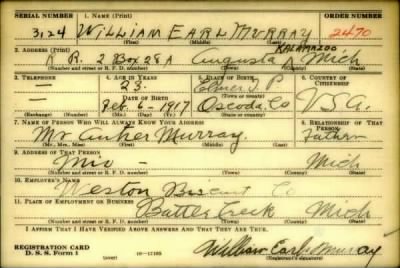 SERIAL NUMBER 1. NAME (Print) ORDER NUMBER
3124 WILLIAM EARL MURRAY 2470
(First) (Middle) (Last)
2. ADDRESS (Print) KALAMAZOO
R R. 2 Box 28A Augusta Mich
(Number and street or R. F. D. number) (Town) (County) (State)
3. TELEPHONE 4. AGE IN YEARS 5. PLACE OF BIRTH 6. COUNTRY OF CITIZENSHIP
— 23 Elmer T P
DATE OF BIRTH (Town or county)
— Feb. 6-1917 Oscoda Co U.S.A.
(Exchange) (Number) (Mo.) (Day) (Yr.) (State or country)
7. NAME OF PERSON WHO WILL ALWAYS KNOW YOUR ADDRESS 8. RELATIONSHIP OF THAT PERSON
Mr. Murray Father
(Mr., Mrs., Miss) (First) (Middle) (Last)
9. ADDRESS OF THAT PERSON
Mio — Mich
(Number and street or R. F. D. number) (Town) (County) (State)
10. EMPLOYER'S NAME
Weston Biscuit Co
11. PLACE OF EMPLOYMENT OR BUSINESS
Battle Creek Mich
(Number and street or R. F. D. number) (Town) (County) (State)
I AFFIRM THAT I HAVE VERIFIED ABOVE ANSWERS AND THAT THEY ARE TRUE.
REGISTRATION CARD William Earl Murray
D. S. S. Form 1 (over) (Registrant's signature)